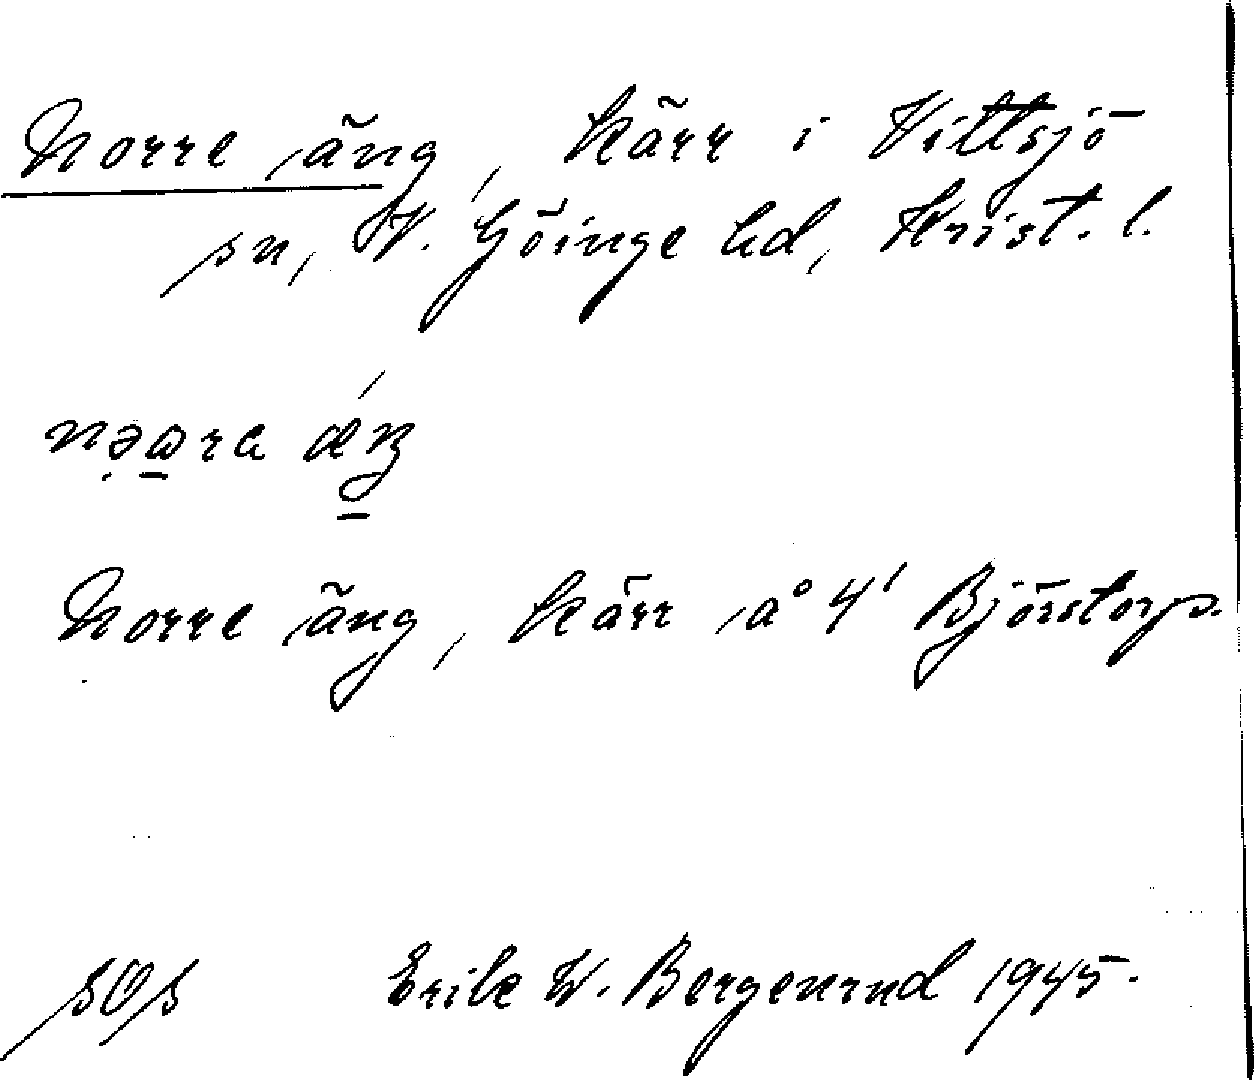 Norre äng, kärr i Vittsjö
sn, V. Göinge hd, Krist. l.
Norre äng, kärr å 4' Björstorp.
Erik W. Bergenrud 1945.